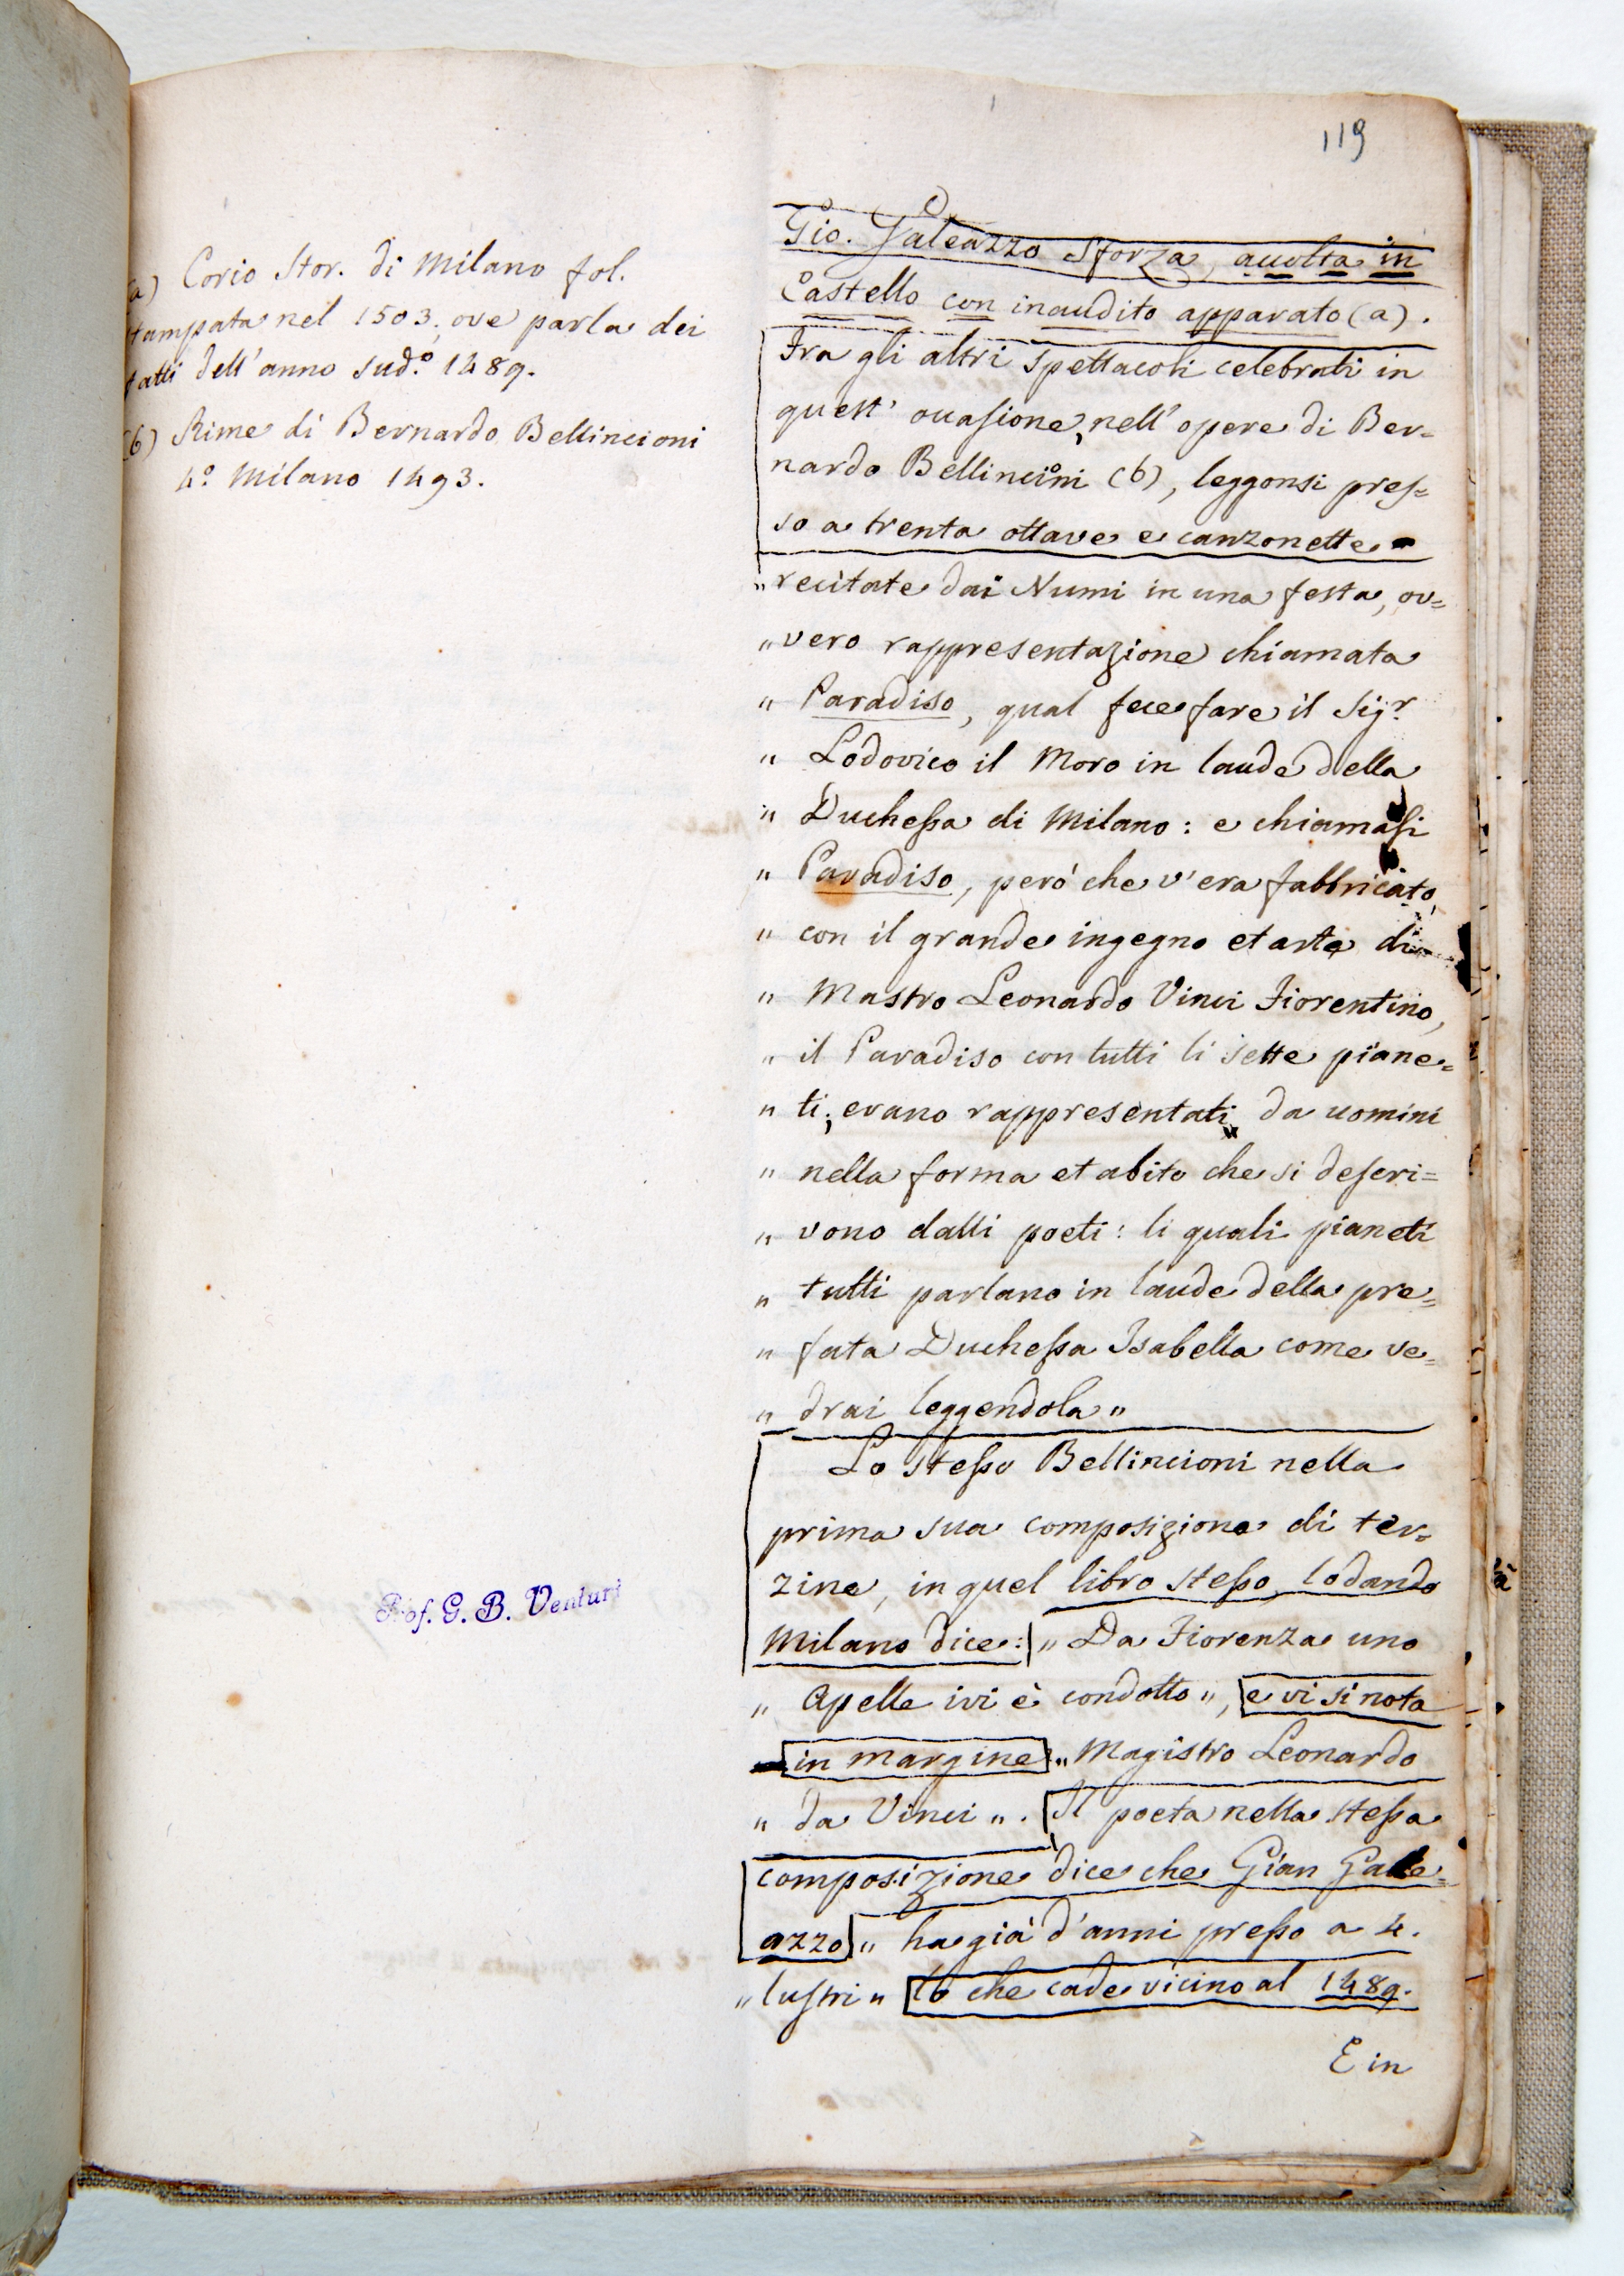 119
(a) Corio Stor. di Milano fol.
stampata nel 1503, ove parla dei
fatti dell'anno sud.º 1489.
(b) Rime di Bernardo Bellincioni
4.º Milano 1493.
Prof. G. B. Venturi
Gio. Galeazzo Sforza, accolta in
Castello con inaudito apparato (a).
Fra gli altri spettacoli celebrati in
quest' occasione, nell' opere di Ber=
nardo Bellincioni (b), leggonsi pres=
so a trenta ottave e canzonette
" recitate dai Numi in una festa, ov=
" vero rappresentazione chiamata
" Paradiso, qual fece fare il Sigr.
" Lodovico il Moro in laude della
" Duchessa di Milano: e chiamasi
" Paradiso, però che v'era fabbricato,
" con il grande ingegno et arte di
" Mastro Leonardo Vinci Fiorentino,
" il Paradiso con tutti li sette piane=
" ti; erano rappresentati da uomini
" nella forma et abito che si descri=
" vono dalli poeti: li quali pianeti
" tutti parlano in laude della pre=
" fata Duchessa Isabella come ve=
" drai leggendola "
Lo stesso Bellincioni nella
prima sua composizione di ter=
zine, in quel libro stesso, lodando
Milano dice: " Da Fiorenza uno
" Apelle ivi è condotto ", e vi si nota
in margine: " Magistro Leonardo
" da Vinci ". Il poeta nella stessa
composizione dice che Gian Gale=
azzo " ha già d'anni presso a 4.
" lustri " lo che cade vicino al 1489.
E in